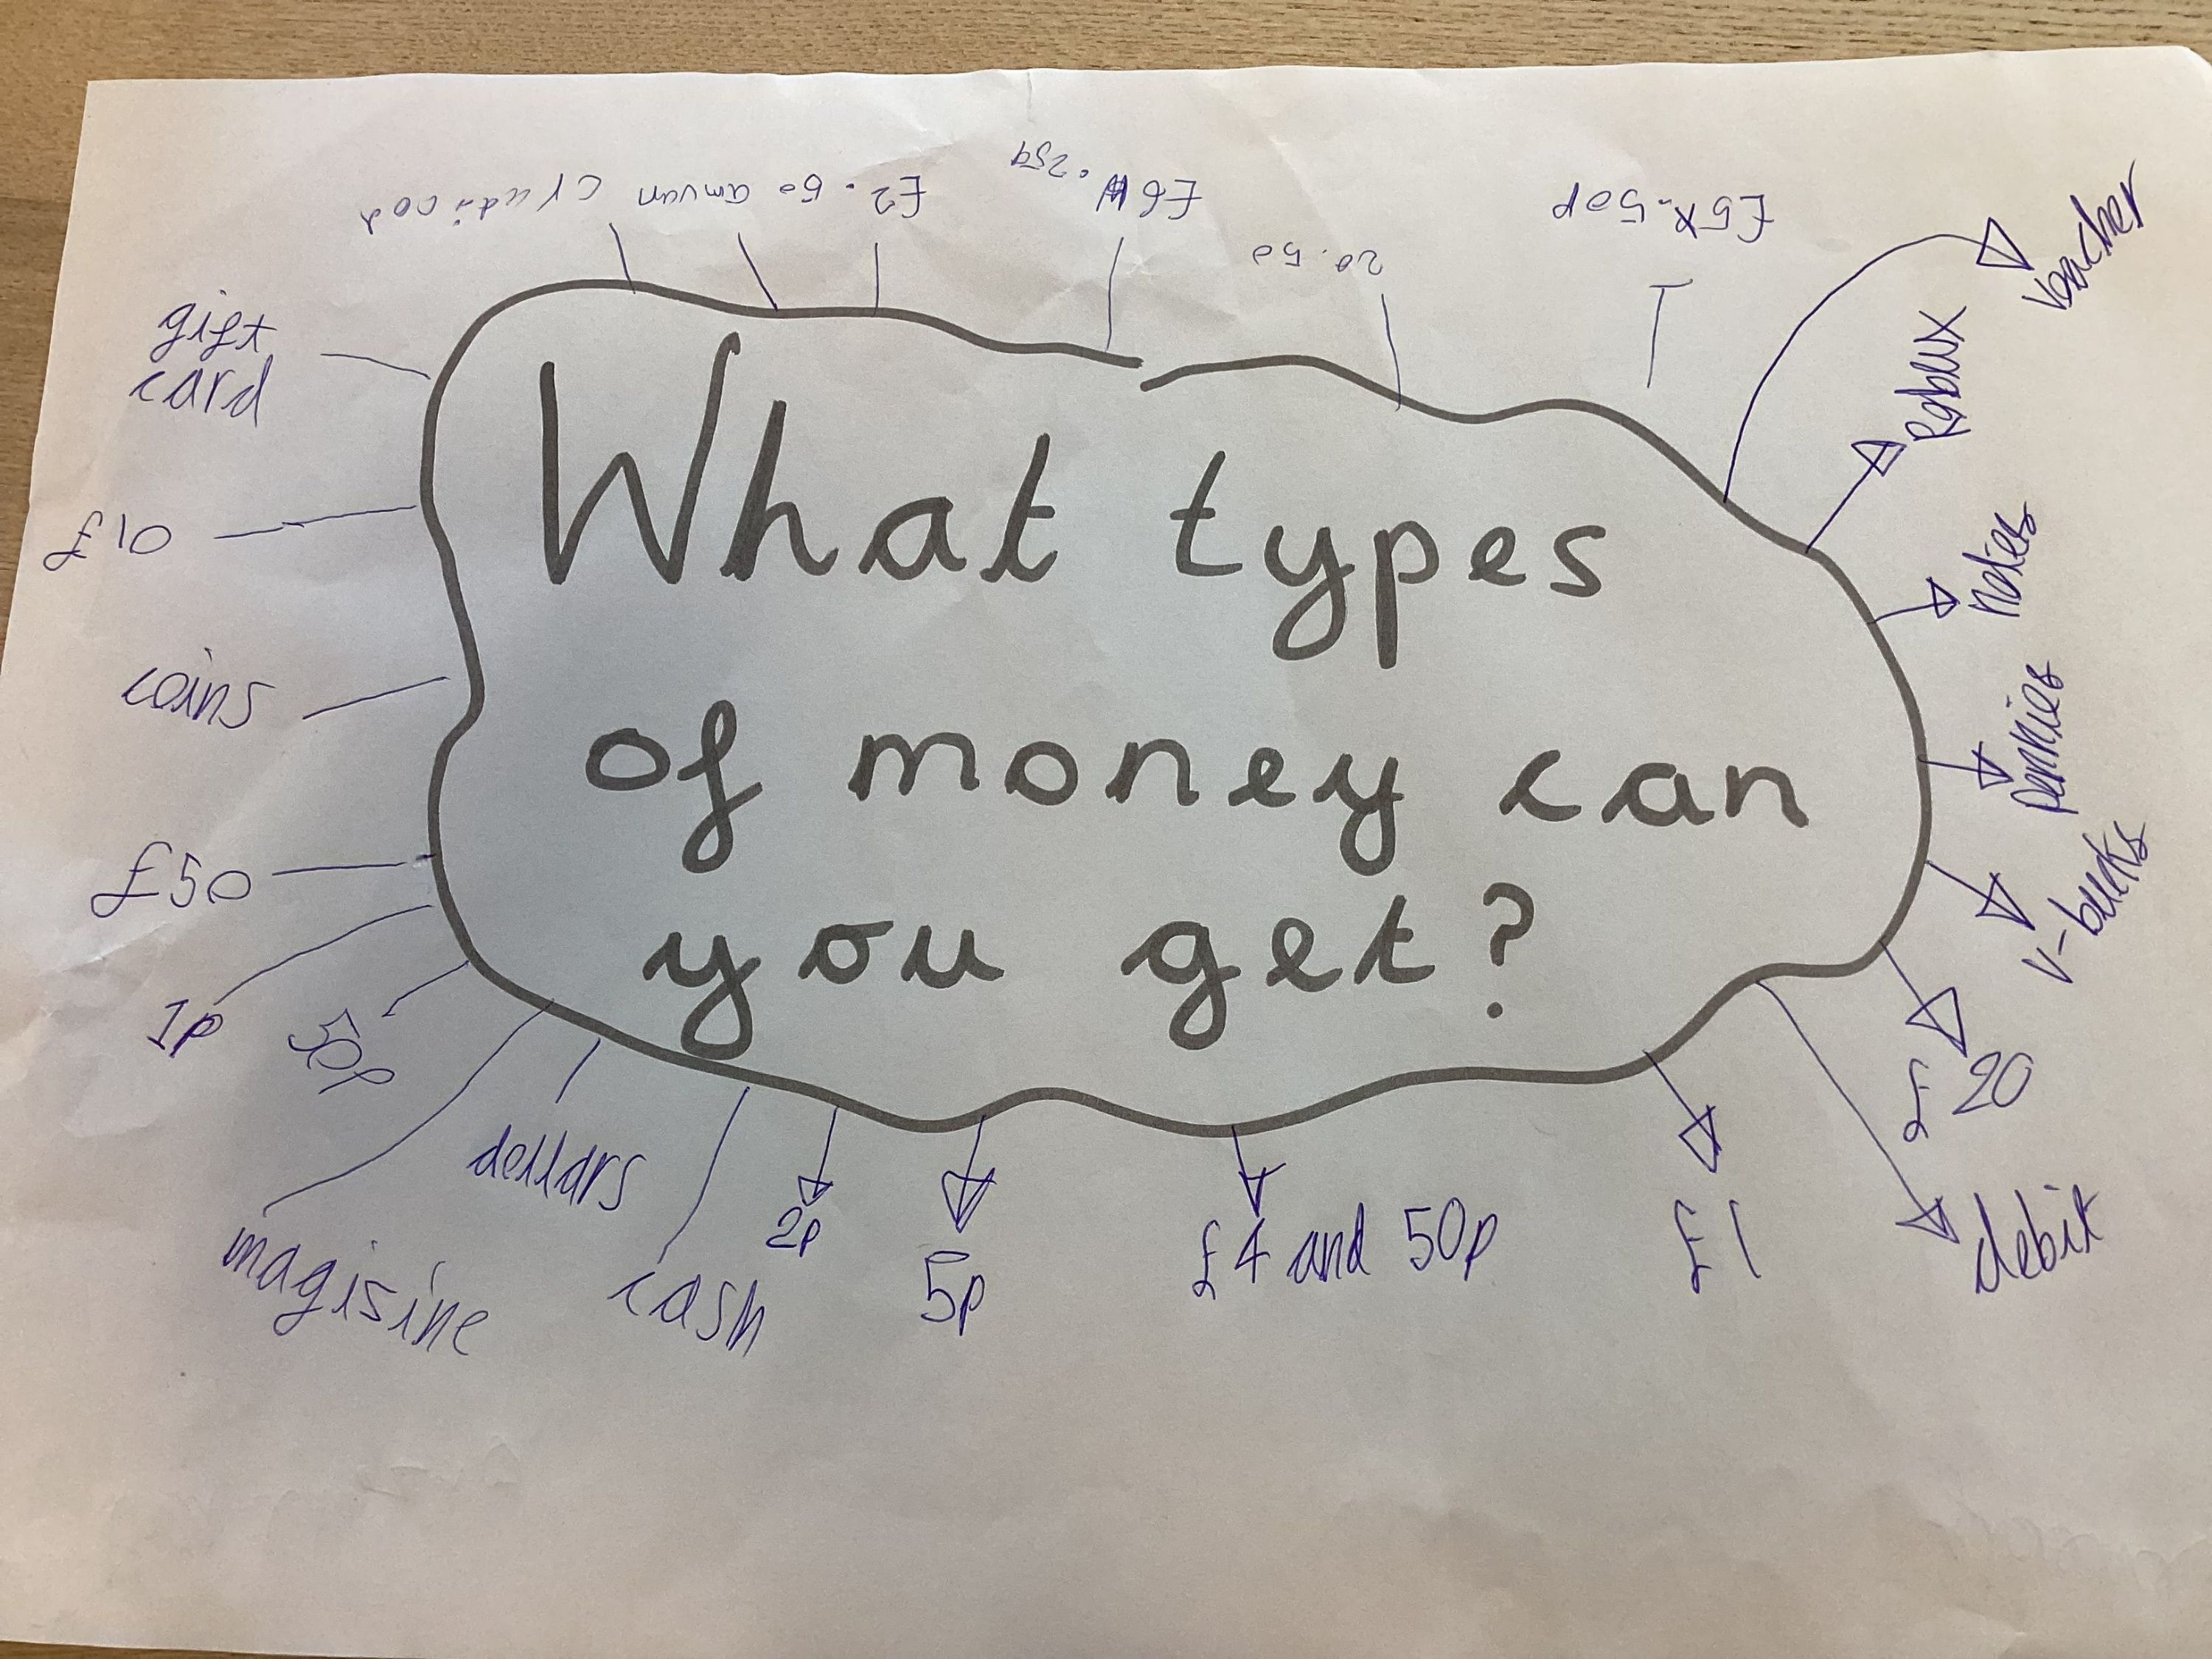 What types
of money can
you get?
voucher
Robux
notes
pennies
v-bucks
£20
debit
£1
£4 and 50p
5p
2p
cash
dellars
magisine
50p
1p
£50
coins
£10
gift
card
£2.50
20.50